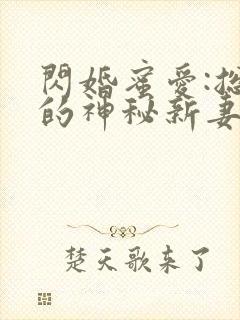 閃婚蜜愛:
的神秘新妻
楚天歌来了